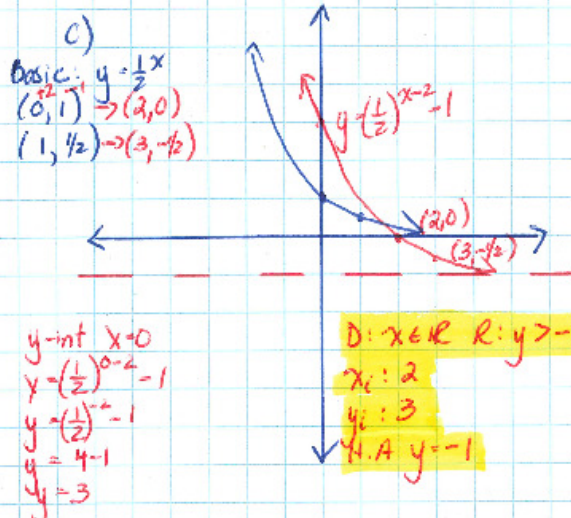 c)
Basic: y = 1/2^x
+2 -1
(0, 1) → (2,0)
(1, 1/2) → (3, -1/2)
y=(1/2)^(x-2) -1
(2,0)
(3, -1/2)
y-int x=0
y = (1/2)^(0-2) -1
y = (1/2)^(-2) -1
y = 4-1
y = 3
D: x∈ℝ R: y > -
x_i : 2
y_i : 3
H.A y = -1